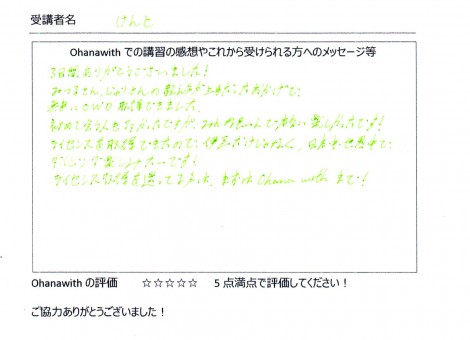 受講者名 けんと
Ohanawith での講習の感想やこれから受けられる方へのメッセージ等
3日間、ありがとうございました!
みつきさん、じょりさんの教え方が上手だったおかげで、
無事にOWD取得できました。
初めて会う人もダかったですが、みんな良い人で 楽しかったです!
ライセンスを取得できたので、伊豆だけじゃなく、日本中・世界中で
ダイビングを楽しみたいです!
ライセンス取得を迷ってる方は、まずは Ohana with まで!
Ohanawith の評価 ☆☆☆☆☆ 5 点満点で評価してください!
ご協力ありがとうございました!